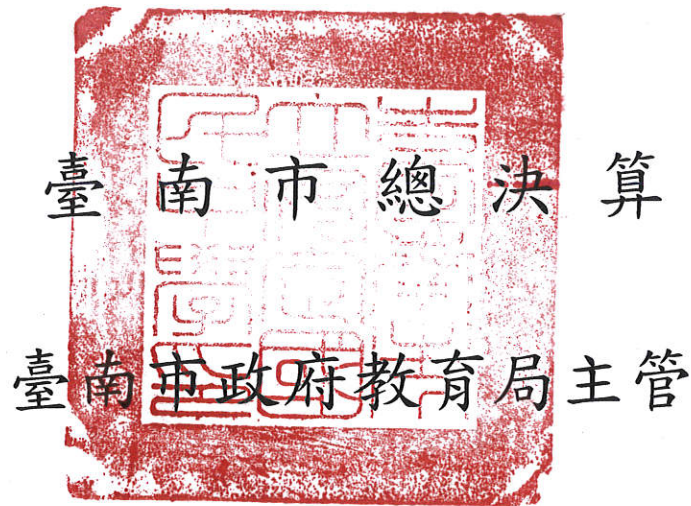 臺南市總決算
臺南市政府教育局主管